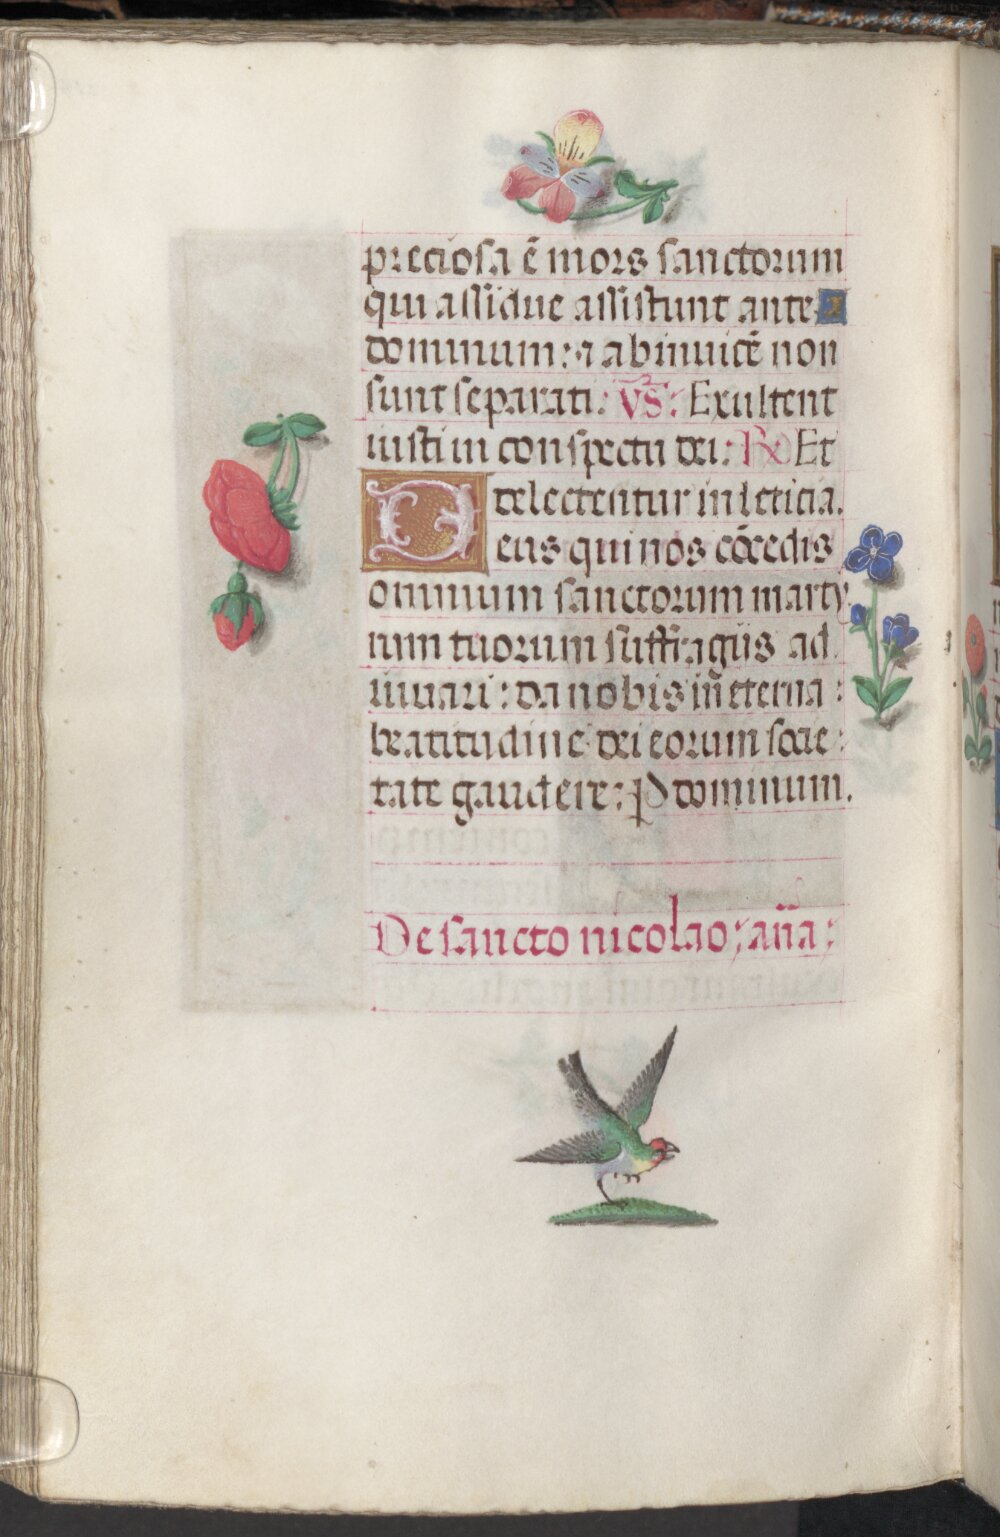 preciosa ē mors sanctorum
qui assidue assistunt ante
dominum: ⁊ abinuicē non
sunt separati: VS: Exultent
iusti in conspectu dei: ℟ Et
delectentur in leticia.
Deus qui nos cōcedis
omnium sanctorum marty
rum tuorum suffragiis ad
iuuari: da nobis in̄ eterna:
beatitudine dei eorum socie:
tate gaudere: P dominum.
De sancto nicolao; an̄a: